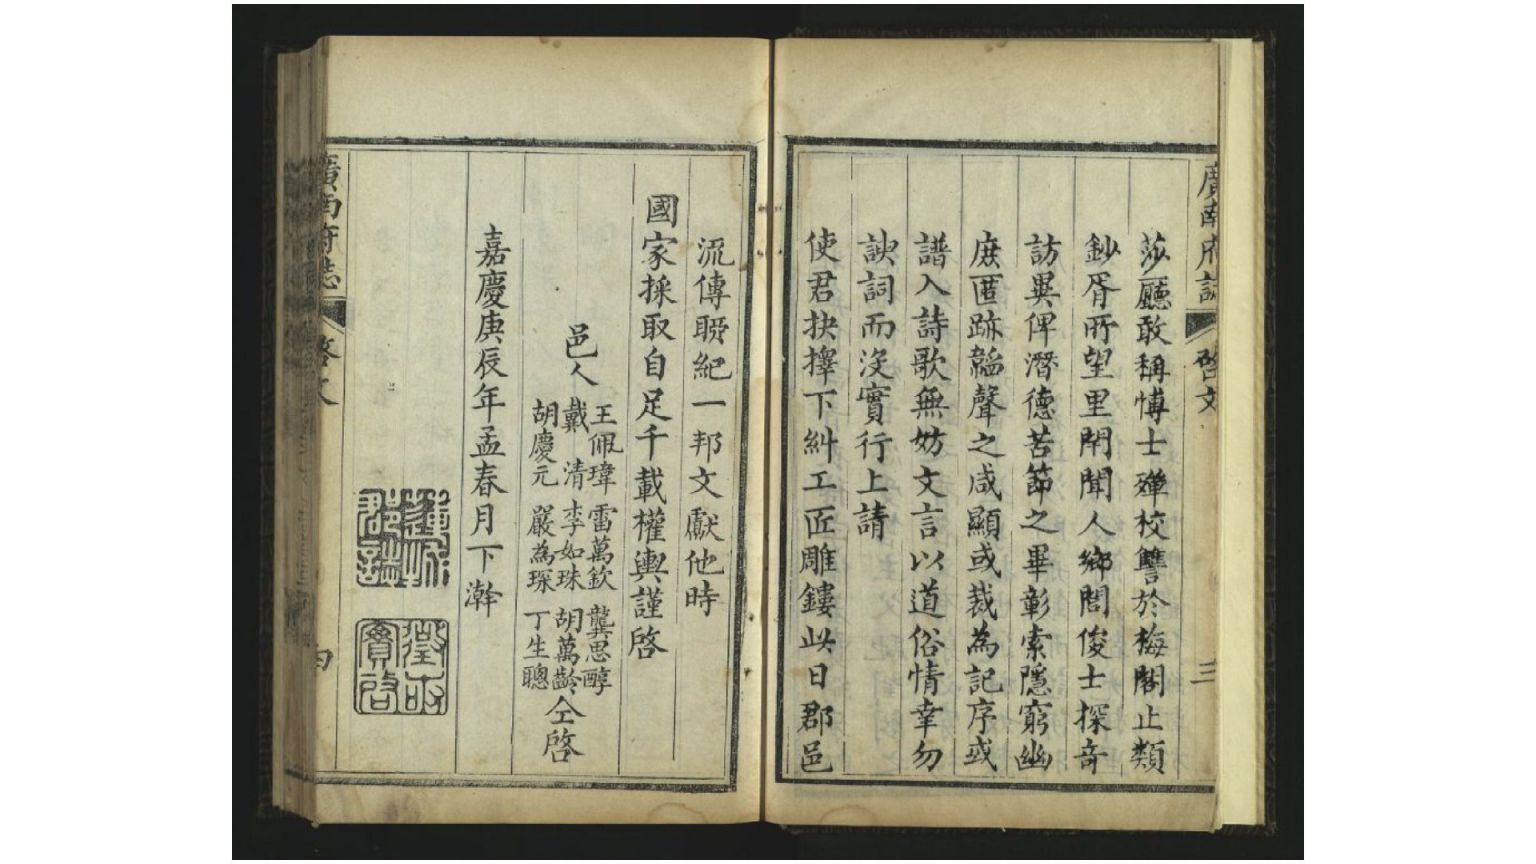 廣南府誌 啓文 三
莎廳敢稱愽士殫校讐於梅閣止類
鈔胥所望里閈聞人鄉閭俊士探奇
訪異俾潛德苦節之畢彰索隱窮幽
庶匿跡韜聲之咸顯或裁為記序或
譜入詩歌無妨文言以道俗情幸勿
諛詞而沒實行上請
使君抉擇下糾工匠雕鏤此日郡邑
流傳聊紀一邦文獻他時
國家採取自足千載權輿謹啓
邑人
王佩瑋 雷萬欽 龔思醇
戴清 李如珠 胡萬齡 仝啓
胡慶元 嚴為琛 丁生聰
嘉慶庚辰年孟春月下澣
蓮城
郡誌
徵求
實啓
廣南府誌 啓文 四